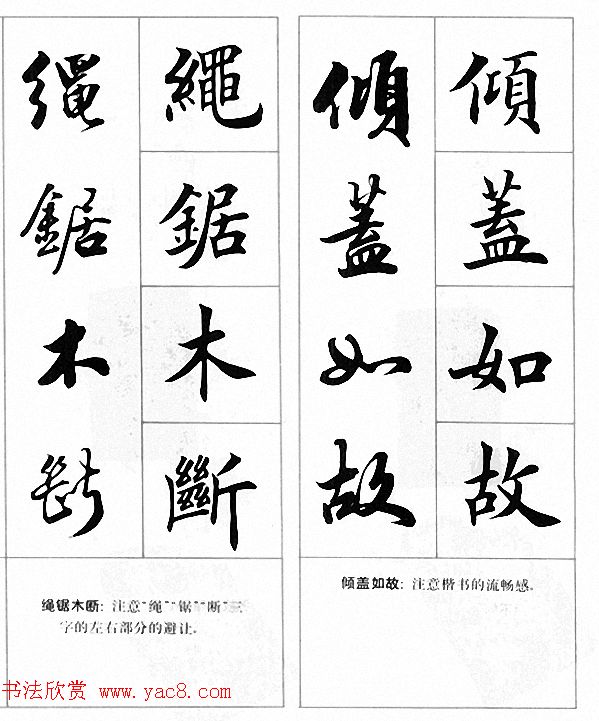 傾蓋如故
傾蓋如故
倾盖如故：注意楷书的流畅感。
繩鋸木斷
繩鋸木斷
绳锯木断：注意“绳”“锯”“断”三
字的左右部分的避让。
书法欣赏 www.yac8.com